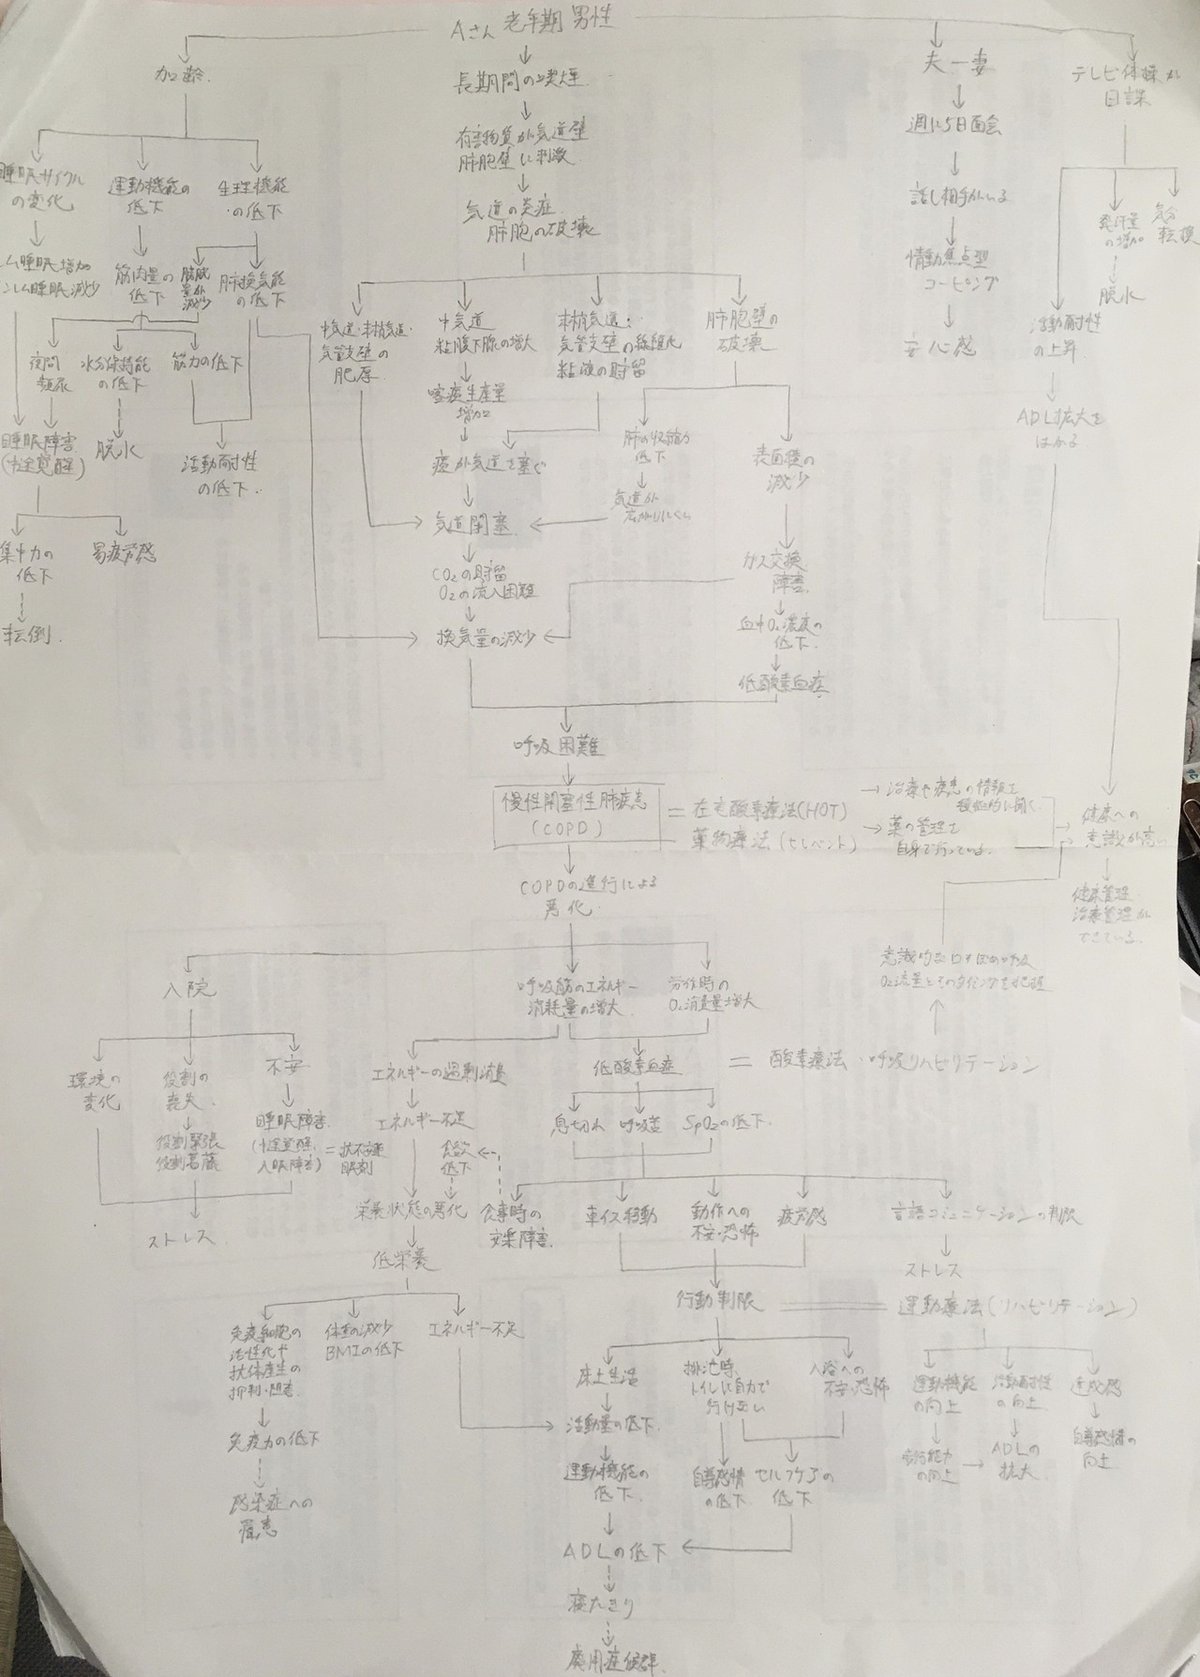 Aさん 老年期 男性
加齢
長期間の喫煙
有害物質が気道壁
肺胞壁に刺激
気道の炎症
肺胞の破壊
夫ー妻
週に5日面会
話し相手がいる
情動焦点型
コーピング
安心感
テレビ体操が
日課
発汗量
の増加
脱水
気分
転換
活動耐性
の上昇
ADL拡大を
はかる
睡眠サイクル
の変化
運動機能の
低下
生理機能
の低下
レム睡眠増加
ノンレム睡眠減少
筋肉量の
低下
肺換気能
の低下
夜間
頻尿
水分保持能
の低下
筋力の低下
睡眠障害
(中途覚醒)
脱水
活動耐性
の低下
集中力の
低下
易疲労感
転倒
中気道・末梢気道・
気管支壁の
肥厚
中気道
粘膜下腺の増大
末梢気道:
気管支壁の線維化
粘液の貯留
肺胞壁の
破壊
喀痰生産量
増加
痰が気道を塞ぐ
肺の収縮力
低下
気道が
広がりにくい
表面積の
減少
気道閉塞
CO₂の貯留
O₂の流入困難
換気量の減少
ガス交換
障害
血中O₂濃度の
低下
低酸素血症
呼吸困難
慢性閉塞性肺疾患
(COPD)
= 在宅酸素療法(HOT)
薬物療法(セレベント)
治療や疾患の情報を
積極的に聞く
薬の管理を
自身で行っている
健康への
意識が高い
健康管理
治療管理が
できている
COPDの進行による
悪化
入院
呼吸筋のエネルギー
消耗量の増大
労作時の
O₂消費量増大
O₂流量とそのタイミングを把握
環境の
変化
役割の
喪失
不安
役割緊張
役割葛藤
睡眠障害
(中途覚醒、
入眠障害)
= 抗不安薬
眠剤
ストレス
エネルギーの過剰消費
エネルギー不足
食欲
低下
栄養状態の悪化
低栄養
低酸素血症
= 酸素療法・呼吸リハビリテーション
息切れ
呼吸苦
SpO₂の低下
食事時の
安楽障害
車イス移動
動作への
不安・恐怖
疲労感
言語コミュニケーションの制限
ストレス
行動制限
運動療法(リハビリテーション)
免疫細胞の
活性化や
抗体産生の
抑制・阻害
体重の減少
BMIの低下
エネルギー不足
免疫力の低下
感染症への
罹患
床上生活
活動量の低下
運動機能の
低下
排泄時、
トイレに自力で
行けない
入浴への
不安・恐怖
自尊感情
の低下
セルフケアの
低下
運動機能
の向上
活動耐性
の向上
達成感
歩行能力
の向上
ADLの
拡大
自尊感情の
向上
ADLの低下
寝たきり
廃用症候群